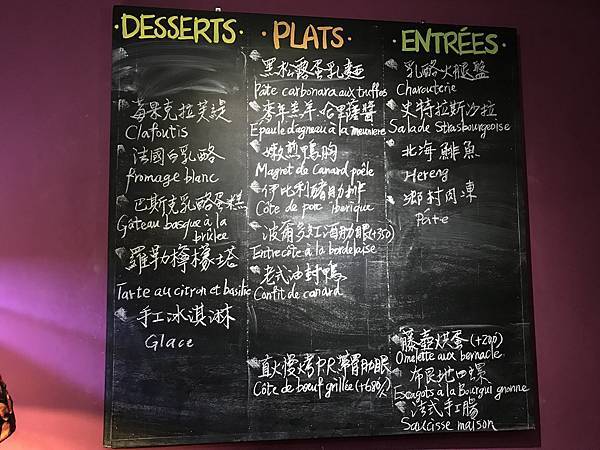 DESSERTS
莓果克拉芙緹
Clafoutis
法國白乳酪
fromage blanc
巴斯克乳酪蛋糕
Gâteau basque à la
brûlée
羅勒檸檬塔
Tarte au citron et basilic
手工冰淇淋
Glace
PLATS
黑松露蛋乳麵
Pâte carbonara aux truffes
Epaule d'agneau à la meuniere
嫩煎鴨胸
Magret de canard poêle
伊比利豬肋排
Côte de porc iberique
波爾多紅酒肋眼(+350)
Entrecôte à la bordelaise
老式油封鴨
Confit de canard
直火慢烤PR帶骨肋眼
Côte de boeuf grillée (+680/)
ENTRÉES
乳酪火腿盤
Charcuterie
史特拉斯沙拉
Salade Strasbourgeoise
北海鯡魚
Hereng
鄉村肉凍
Pâte
藤壺烘蛋(+200)
Omelette aux bernacle
布根地田螺
Escagots à la Bourguignonne
法式手工腸
Saucisse maison